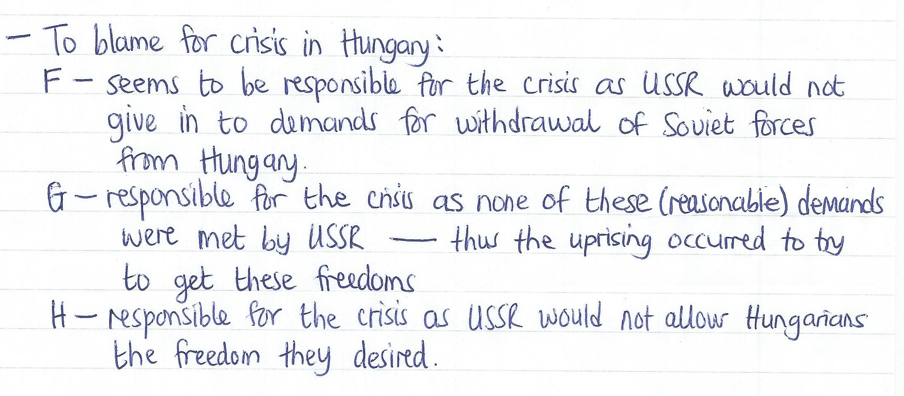 – To blame for crisis in Hungary:
F – seems to be responsible for the crisis as USSR would not
give in to demands for withdrawal of Soviet forces
from Hungary.
G – responsible for the crisis as none of these (reasonable) demands
were met by USSR — thus the uprising occurred to try
to get these freedoms
H – responsible for the crisis as USSR would not allow Hungarians
the freedom they desired.